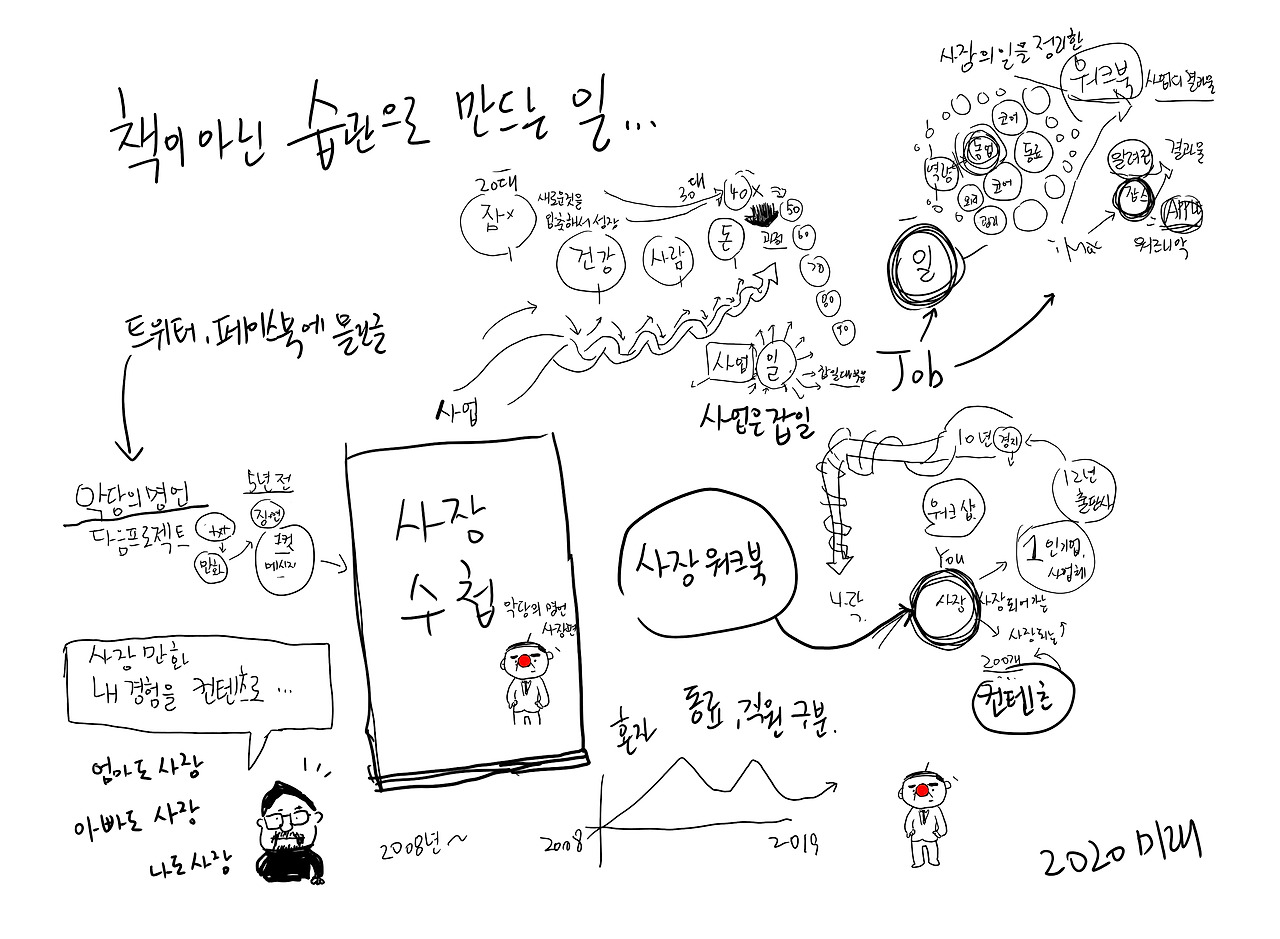 책이 아닌 습관으로 만드는 일...
20대
잡x
새로운것을
입출해서 성장
30대
40 x =
50
60
70
80
90
건강
사람
돈
사업
사업
일
사업은 잡일
사장의 일을 정리한
워크북
사업의 결과물
코어
동업
동료
역량
코어
일
Job
알려진
결과물
잡스
Apple
iMac
워즈니악
트위터, 페이스북에 올린글
악당의 명언
다음프로젝트
txt
만화
5년 전
징면
포켓
메시지
사장
수첩
악당의 명언
사장편
사장 만화
내 경험을 컨텐츠로 ...
엄마도 사장
아빠도 사장
나도 사장
2008년 ~
사장 워크북
10년
경지
12년
출판사
워크샵
1인기업,
사업체
시각
You
사장
사장되어가는
사장되는
200개
컨텐츠
혼자
동료, 직원 구분.
2008
2019
2020 미래